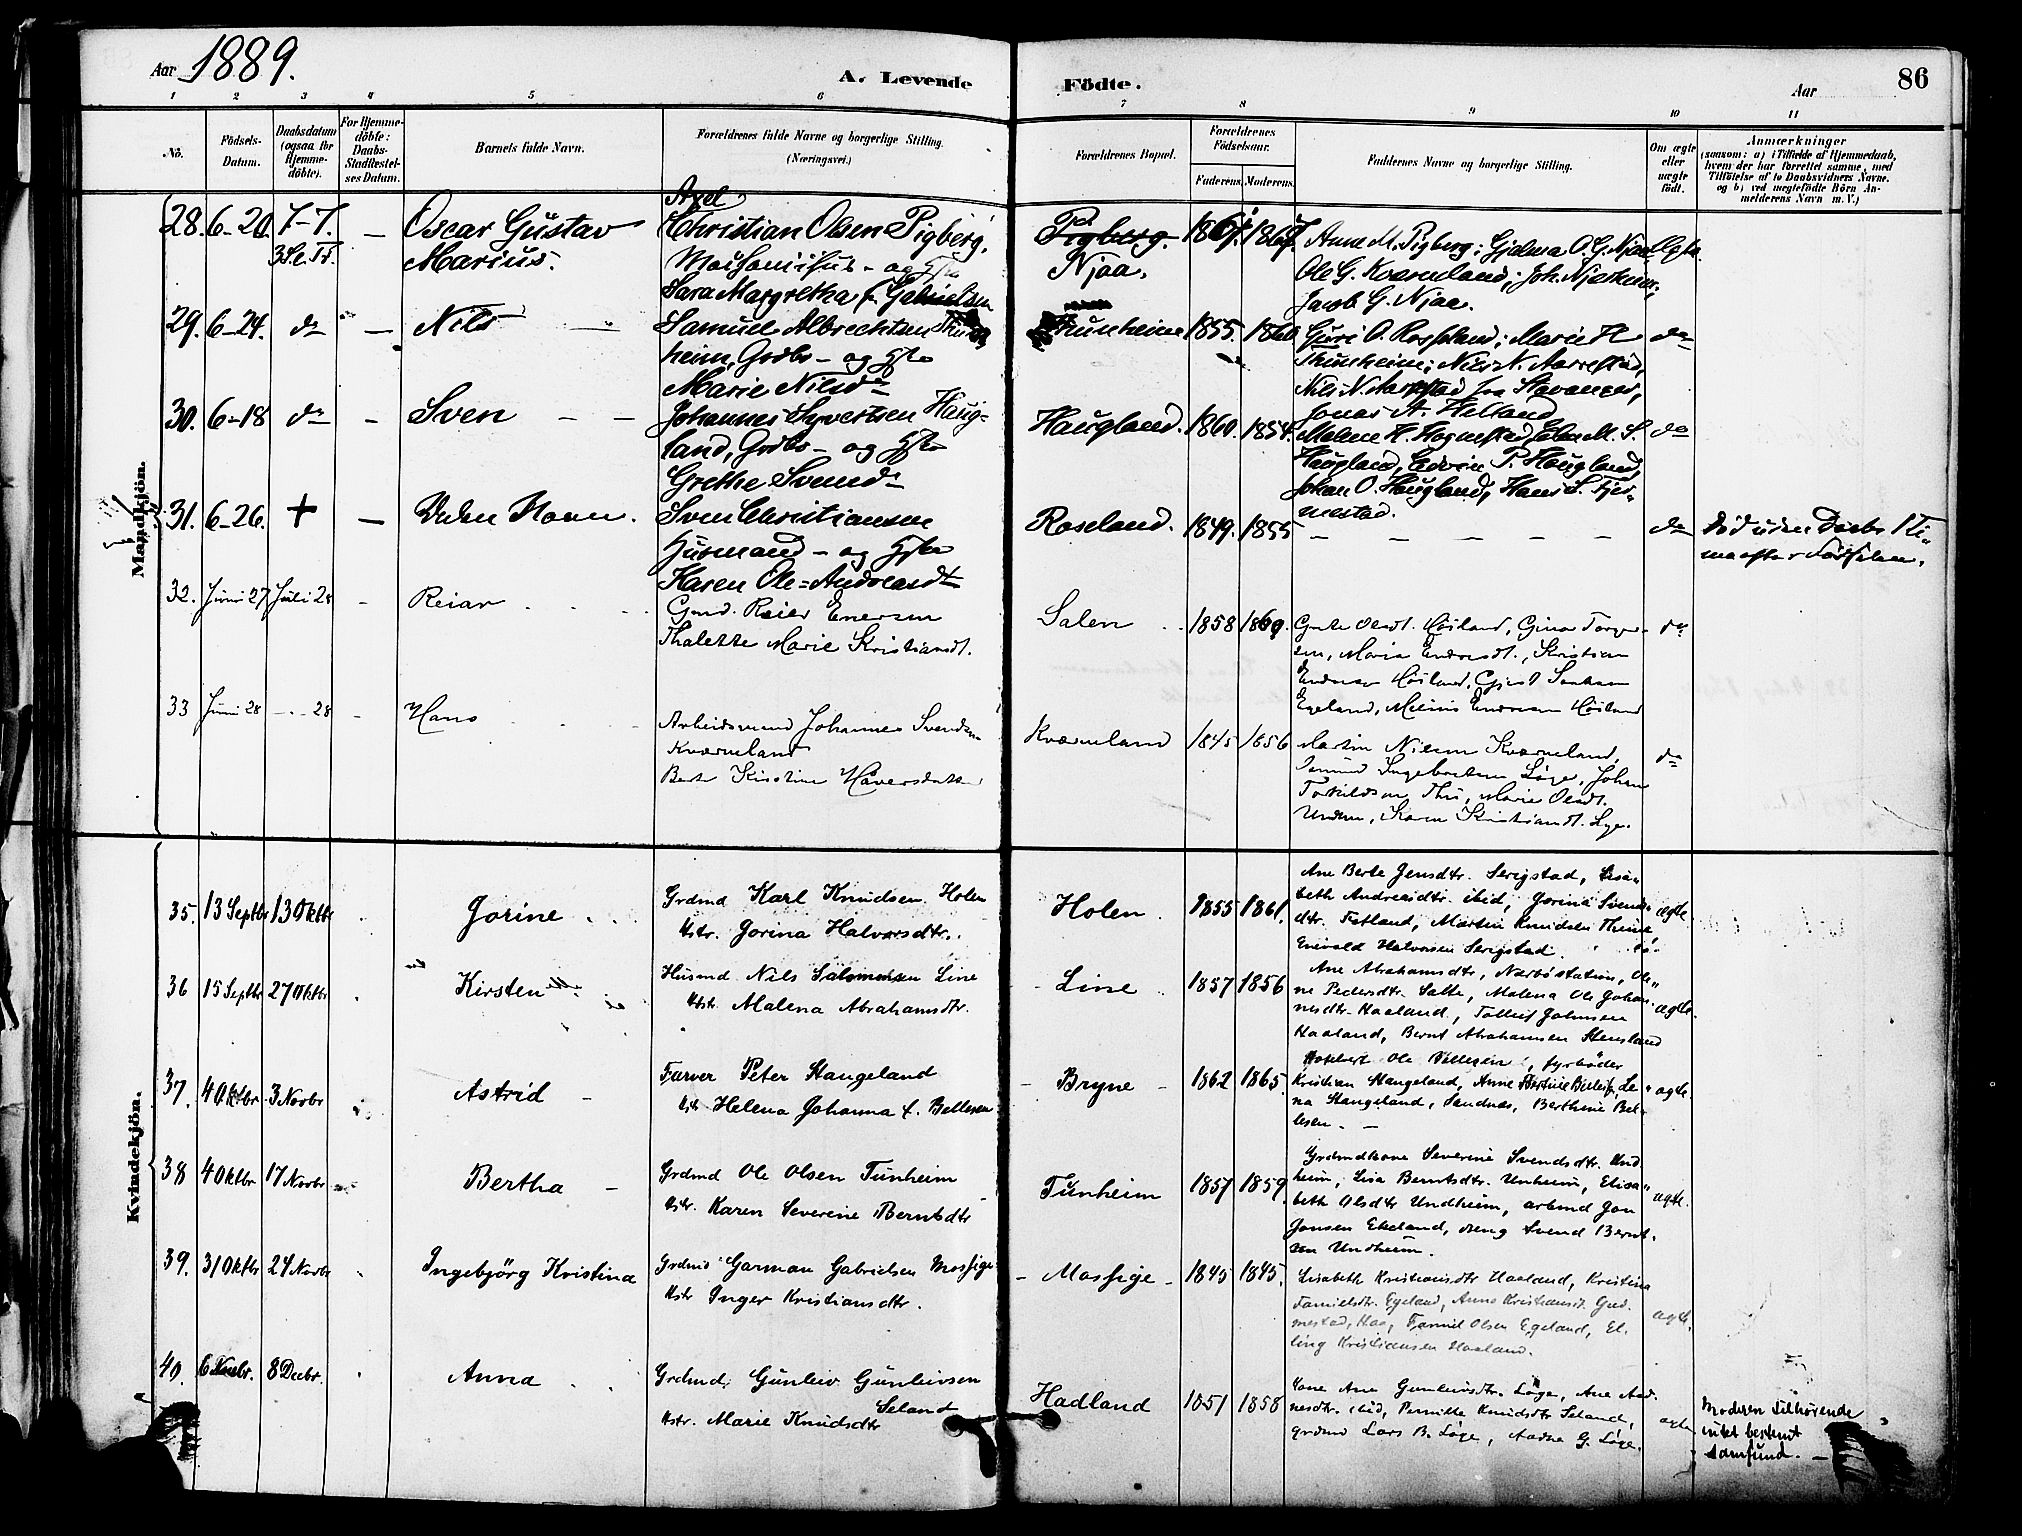 Aar 1889.
A. Levende Födte.
Aar
86
1 2 3 4 5 6 7 8 9 10 11
No.
Födsels-Datum.
Daabsdatum (ogsaa for Hjemmedöbte).
For Hjemmedöbte: Daabs-Stadfæstelses Datum.
Barnets fulde Navn.
Forældrenes fulde Navne og borgerlige Stilling. (Næringsvei.)
Forældrenes Bopæl.
Forældrenes Födselsaar.
Faderens. Moderens.
Faddernes Navne og borgerlige Stilling.
Om ægte eller uægte födt.
Anmærkninger
(saasom: a) i Tilfælde af Hjemmedaab, hvem der har forrettet samme, med Tilföielse af to Daabsvidners Navne. og b) ved uægtefödte Börn Anmelderens Navn m. V.)
Mandkjön.
28. 6-20. 7-7. Oscar Gustav Marius. Axel Christian Olsen Pigberg,
og Sara Margretha f. Gabrielsen
Pigberg. Njaa. 1867.
Anne M. Pigberg; Gjelina O. G. Njaa
Ole G. Kværneland; Joh. Njaskeim;
Jacob G. Njaa.
29. 6-24. do — Nils Samuel Albrechtsen Thunheim, Grdbr – og Hstr
Marie Nilsdtr
Thunheim 1855. 1860
Guri O. Rosseland; Marie
Thunheim; Nils N. Aarrestad,
Nils N. Aarrestad fra Stavanger,
Jonas A. Helland
do
30. 6-18 do - Sven Johannes Syvertsen Haugland, Grdbr – og Hstr
Grethe Svendsdr
Haugland. 1860. 1854.
Malene H. Hognestad, Elen M. S.
Haugland, Edvin P. Haugland,
Johan O. Haugland, Hans S. Tjermestad.
do
31. 6-26. + — Uden Navn. Sven Christiansen
Husmand – og Hstr
Karen Ole-Andreasdtr
Roseland. 1849. 1855
do
Död uden Daab 1 Time efter Födselen.
32. Juni 27 Juli 28 - Reiar Gmd. Reier Enersen
Thalette Marie Kristiansdt.
Salen 1858
Grete Olsdt. Höiland, Gina
Maria Endresdt., Kristian
Endresen Höiland, Gjert
Egeland, Endresen Höiland
do
33 Juni 28 28 - Hans Arbeidsmand Johannes Svendsen
Kværneland
Berte Kirstine Håversdatter
Kværneland 1845 1856
Martin Nilsen Kværneland,
Ingebretsen Lÿge, Johan
Torkildsen Thu, Marie Olsdt.
Undem, Karen Kristiansdt. Lye.
do
Kvindekjön.
35. 13 Septbr 13 Oktbr Gorine Grdmd Karl Knudsen Holen
Hstr. Gorina Halvorsdtr.
Holen. 1855 1861.
Ane Berte Jensdtr. Serigstad, Lisabeth Andreasdtr. ibid, Gorina Svendsdtr. Fotland, Martin Knudsen Theime
Enevald Halvorsen Serigstad.
ægte
36 15 Septbr 27 Oktbr Kirsten Husmd Nils Salomonsen Line
Hstr. Malena Abrahamsdtr.
Line 1857 1856
Ane Abrahamsdtr, Narböstation, Oline Pedersdtr. Salte, Malena Ole Johannesdtr. Haaland, Tollef Johnsen
Haaland, Bernt Abrahamsen Stensland
ægte.
37. 4 Oktbr. 3 Novbr Astrid Farver Peter Stangeland
Hstr. Helena Johanna f. Bellesen
Bryne 1862 1865
Ole Vollesen, fyrböder
Kristian Stangeland, Anne Lena Stangeland, Sandnes, Berthine Bellesen. —
ægte.
38 4 Oktbr 17 Novbr Bertha Grdmd Ole Olsen Tunheim
Hstr. Karen Severine Berntsdtr
Tunheim 1857 1859
Grdmdkone Severine Svendsdtr. Undheim, Lisa Berntsdtr. Unheim, Elisabeth Olsdtr Undheim, arbmd Jon
Jonsen Ekeland, Svend Berntsen Undheim.
ægte.
39. 31 Oktbr 24 Novbr Ingebjörg Kristina Grdmd Garman Gabrielsen Mossige
Hstr Inger Kristiansdtr.
Mossige 1845 1845.
Lisabeth Kristiansdtr Haaland, Kristina
Egeland, Anne Kristiansdt. Gudmestad, Haa, Daniel Olsen Egeland, Elling Kristiansen Haaland.
ægte.
40. 6 8 Decbr. Anna Grdmd. Gunleiv Gunleivsen
Seland
Hstr. Marie Knudsdtr
Hadland 1851 1858
Ane Gunleivsdtr. Löge, Ane Aadnesdtr. ibid, Pernille Knudsdtr Seland,
grdmd Lars B. Löge, Aadne G. Löge.
ægte
Moderen tilhörende
intet bestemt
samfund. —